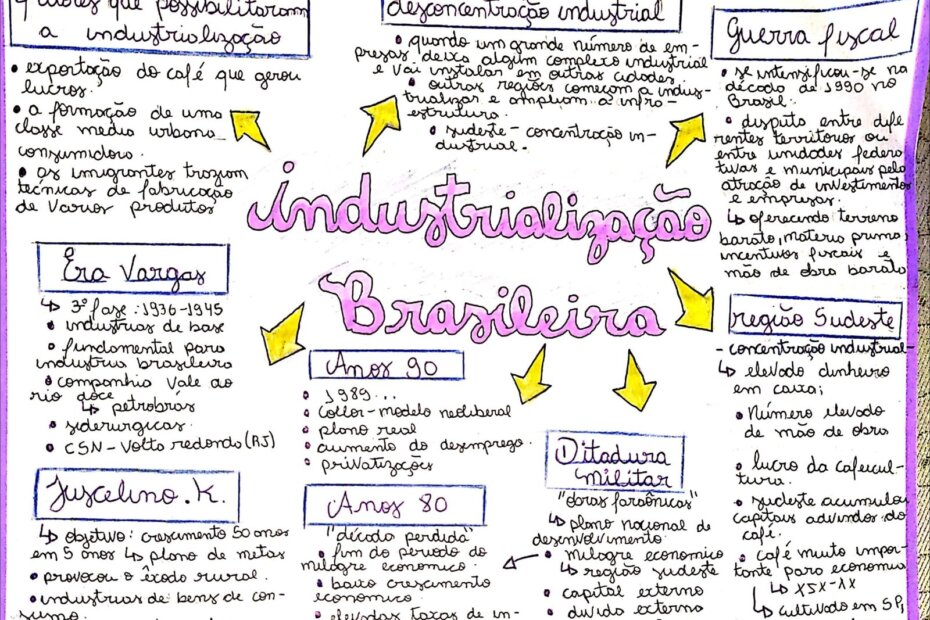 Fatores que possibilitaram
a industrialização
• exportação do café que gerou
lucros.
• a formação de uma
classe media urbana
consumidora.
• os imigrantes traziam
técnicas de fabricação
de varios produtos
desconcentração industrial
• quando um grande número de em-
presas deixa algum complexo industrial
e vai instalar em outras cidades
• outras regiões começam a indus-
trializar e ampliam a infra-
estrutura.
• sudeste - concentração in-
dustrial.
Guerra fiscal
• se intensificou-se na
década de 1990 no
Brasil.
• disputa entre dife
rentes territorios ou
entre unidades federa
tivas e municipais pela
atração de investimentos
e empresas.
↳ oferecendo terreno
barato, materia prima,
incentivos fiscais e
mão de obra barata
industrialização
Brasileira
Era Vargas
↳ 3ª fase: 1936-1945
• industrias de base
• fundamental para
industria brasileira
• companhia Vale do
rio doce
↳ petrobrás
• siderurgicas
• CSN - Volta redonda (RJ)
Juscelino. K.
↳ objetivo: crescimento 50 anos
em 5 anos ↳ plano de metas
• provocou o êxodo rural.
• industrias de bens de con-
sumo.
Anos 90
• 1989...
• Collor - modelo neoliberal
• plano real
• aumento do desemprego.
• privatizações
Anos 80
"década perdida"
• fim do periodo do
milagre economico.
• baixo crescimento
economico.
• elevadas taxas de in-
Ditadura
Militar
"obras faraônicas"
↳ plano nacional de
desenvolvimento.
• milagre economico
↳ região sudeste
• capital externo
• divida externa
região Sudeste
- concentração industrial -
↳ elevado dinheiro
em caixa;
• Número elevado
de mão de obra
• lucro da cafeicul-
tura.
• sudeste acumulou
capitais advindos do
café.
• café muito impor-
tante para economia
↳ XIX-XX
↳ cultivado em SP,